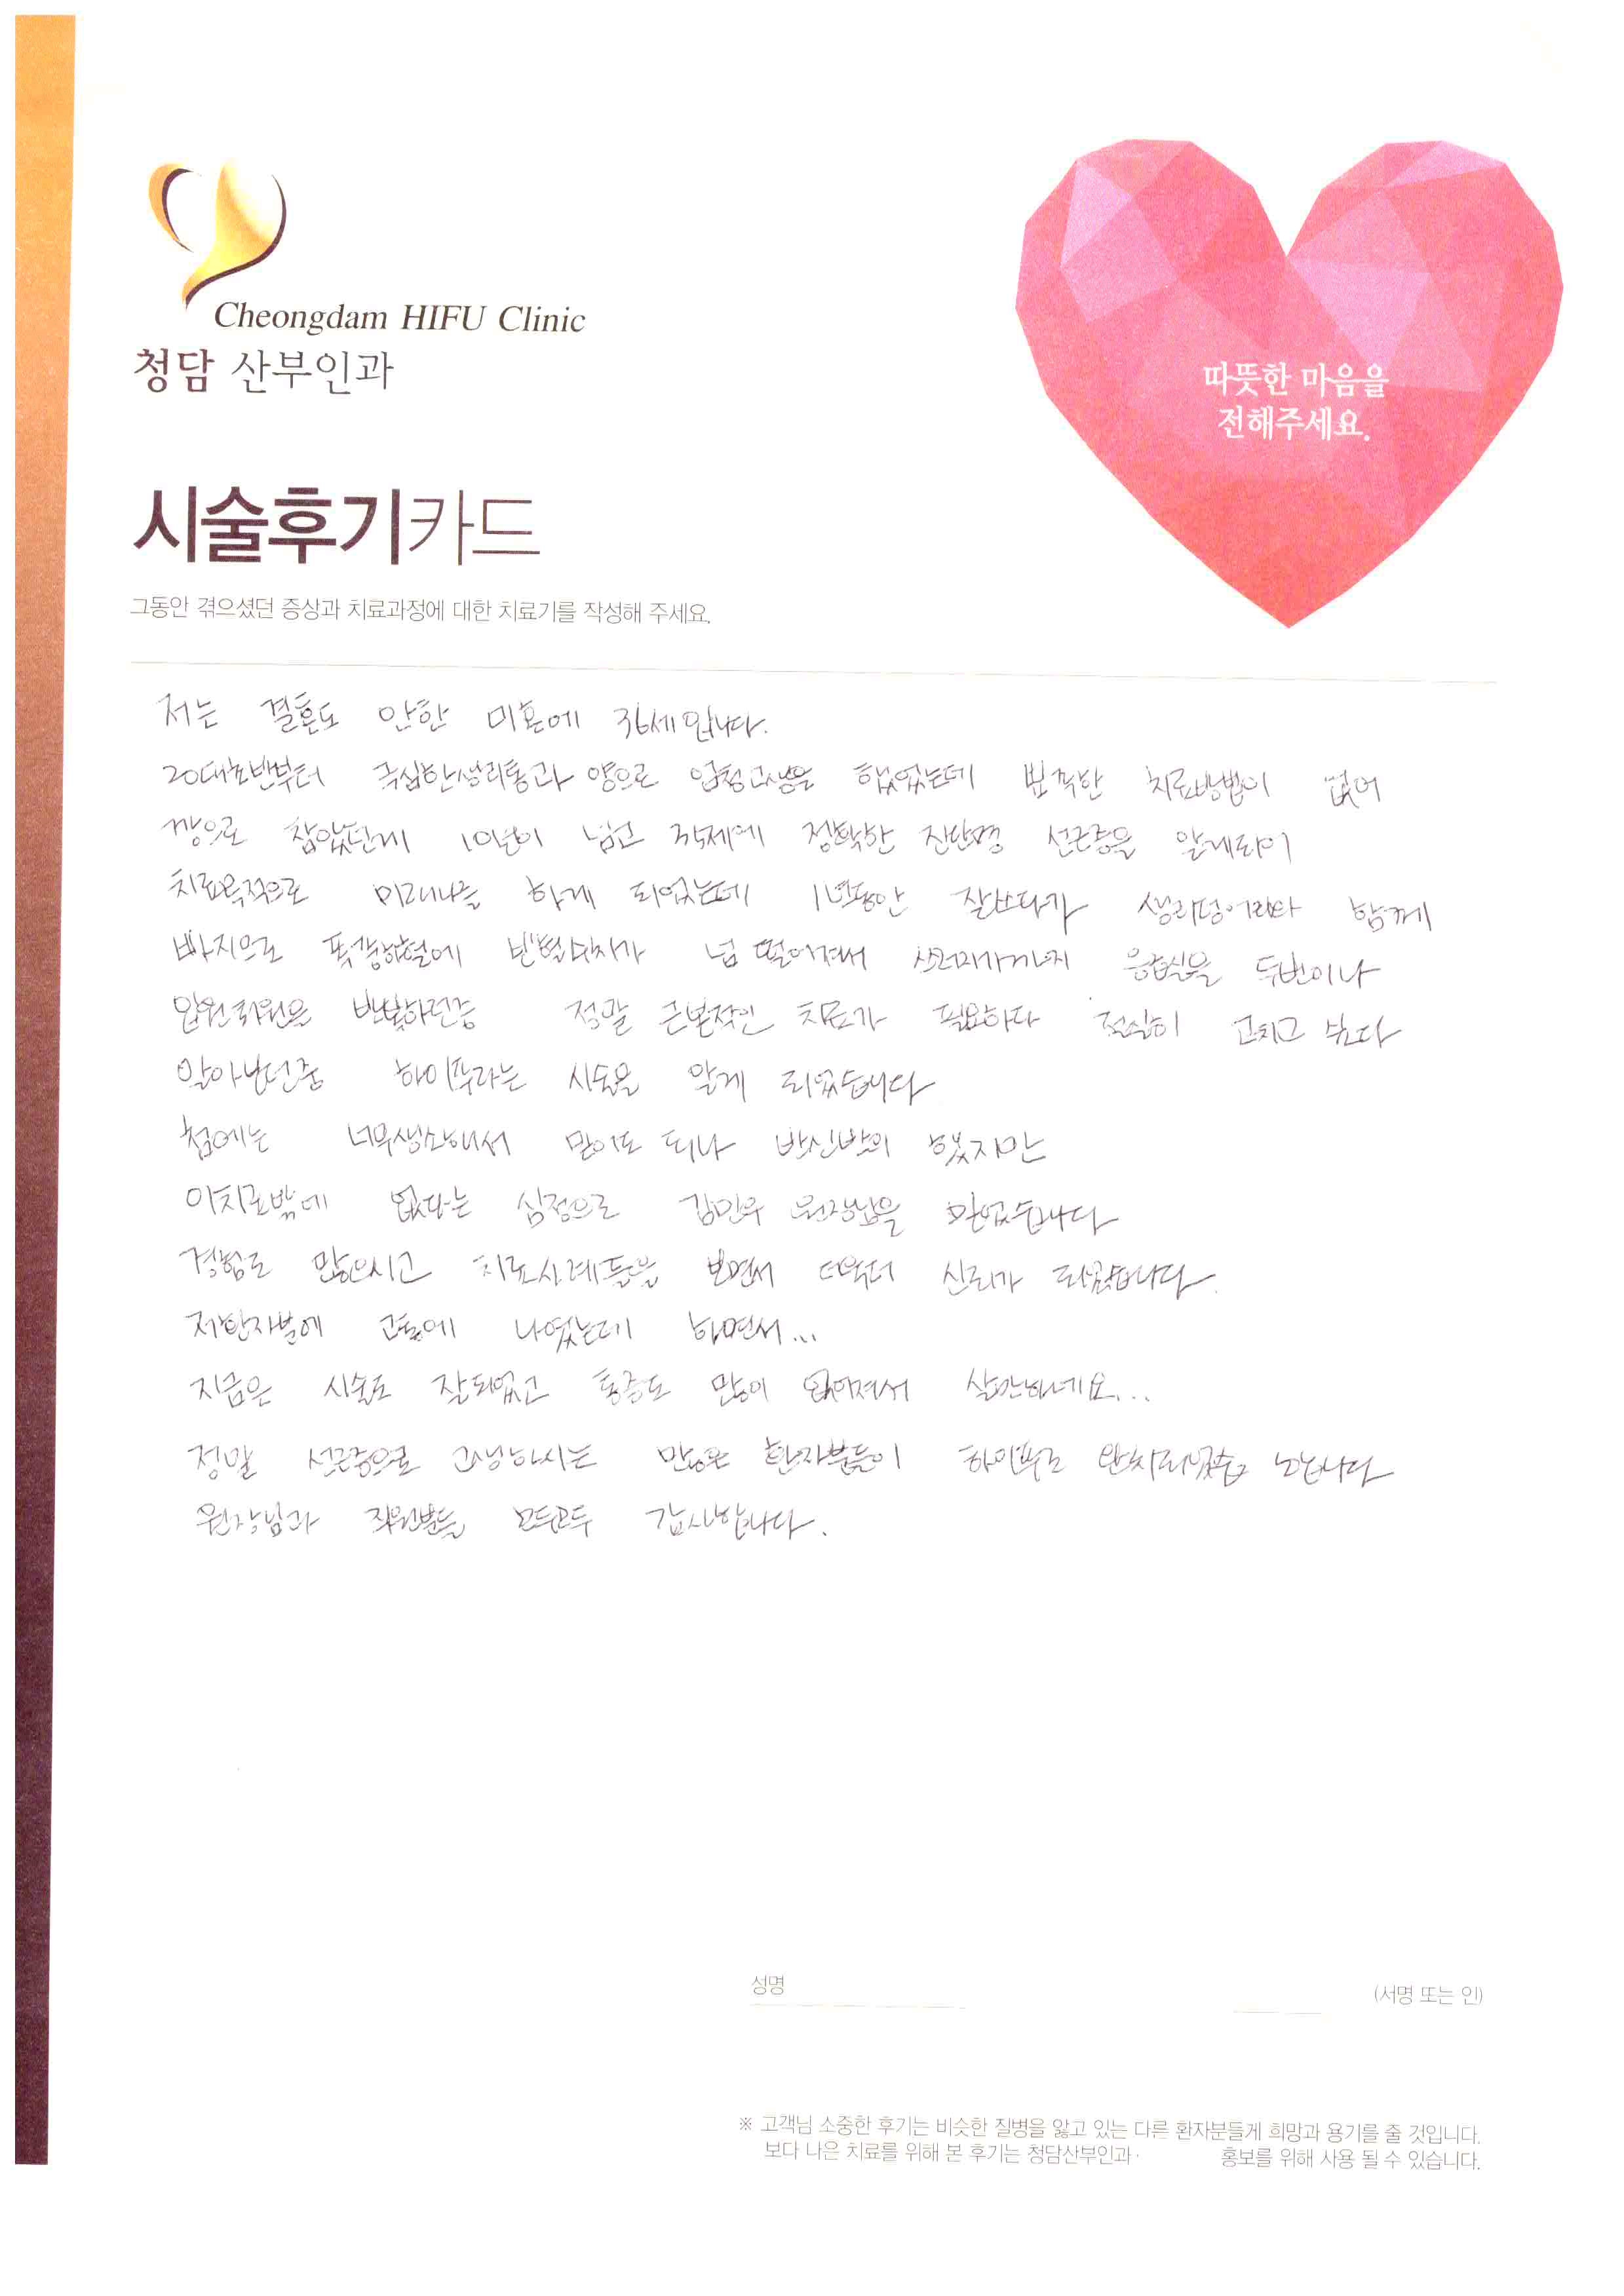 Cheongdam HIFU Clinic
청담 산부인과
따뜻한 마음을
전해주세요.
시술후기카드
그동안 겪으셨던 증상과 치료과정에 대한 치료기를 작성해 주세요.
저는 결혼도 안한 미혼에 36세입니다.
20대초반부터 극심한생리통과 양으로 엄청고생을 했었는데 뾰족한 치료방법이 없어
깡으로 참았던게 10년이 넘고 작제에 정확한 진단명 선근증을 알게되어
치료목적으로 미레나를 하게 되었는데 1년동안 잘쓰다가 생리덩어리와 함께
빠지으로 폭풍하혈에 빈혈수치가 넘 떨어져서 쓰러지기까지 응급실을 두번이나
입원퇴원을 반복하던중 정말 근본적인 치료가 필요하다 절실히 고치고 싶다
알아보던중 하이푸라는 시술을 알게 되었습니다
첨에는 너무생소해서 믿어도 되나 반신반의 했지만
이치료밖에 없다는 심정으로 김민우 원장님을 믿었습니다
경험도 많으시고 치료사례들을 보면서 더욱더 신뢰가 되었습니다.
저한자분에 고통에 나였는데 하면서...
지금은 시술도 잘되었고 통증도 많이 없어져서 살만하네요...
정말 선근증으로 고생하시는 많은 환자분들이 하이푸로 완치되었음 합니다
원장님과 직원분들 모두모두 감사합니다.
성명
(서명 또는 인)
※ 고객님 소중한 후기는 비슷한 질병을 앓고 있는 다른 환자분들게 희망과 용기를 줄 것입니다.
보다 나은 치료를 위해 본 후기는 청담산부인과· 홍보를 위해 사용 될 수 있습니다.